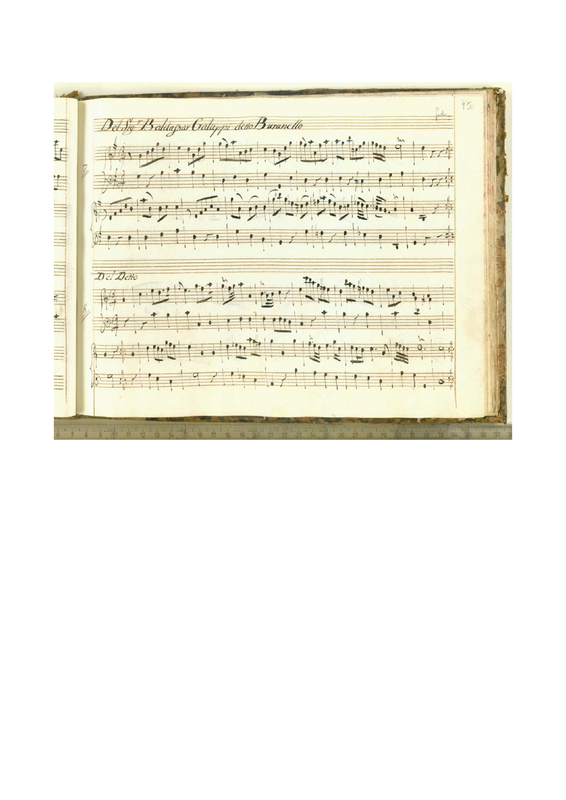 Del Sig.r Baldassar Galuppi detto Buranello
Del Detto